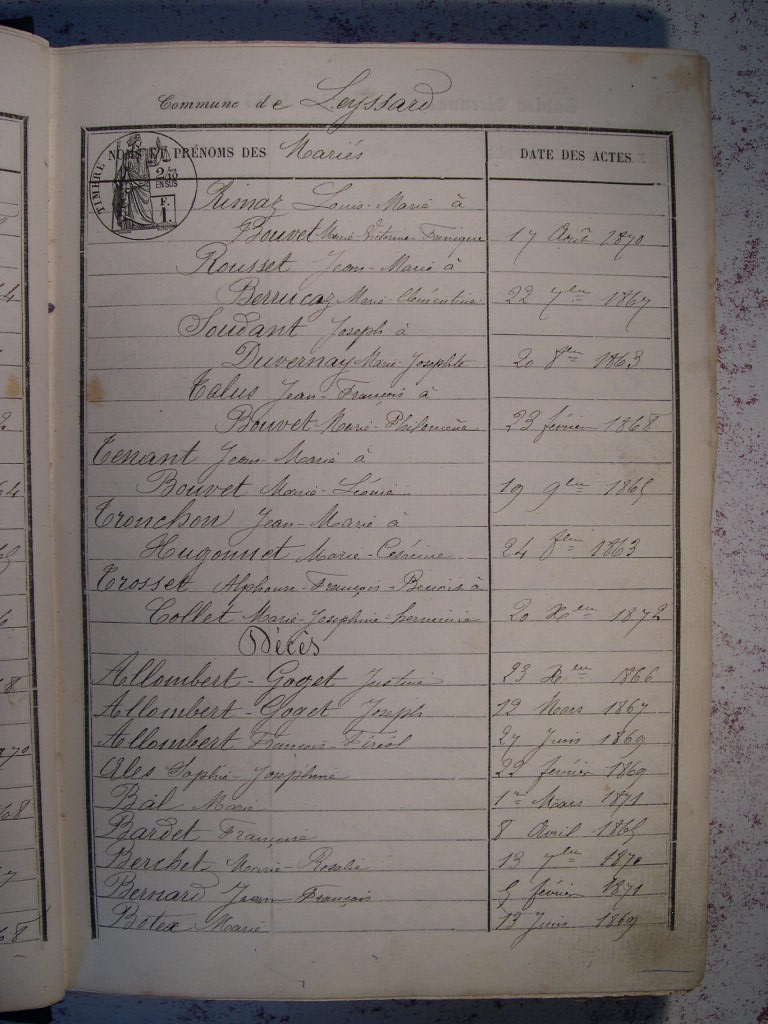 Commune de Leyssard
NOMS ET PRÉNOMS DES Mariés
DATE DES ACTES
TIMBRE
2/10
EN SUS
F.
1.
Rimaz Louis-Marie à
Bouvet Marie-Victorine-Francique 17 Août 1870
Rousset Jean-Marie à
Berrucaz Marie Clémentine 22 7bre 1867
Soudant Joseph à
Duvernay Marie-Josephte 20 8bre 1863
Talus Jean-François à
Bouvet Marie-Philomène 23 février 1868
Tenant Jean-Marie à
Bouvet Marie-Léonie 19 9bre 1865
Tronchon Jean-Marie à
Hugonnet Marie-Césarine 24 8bre 1863
Trosset Alphonse-François-Benois à
Collet Marie-Josephine-herminie 20 Xbre 1872
Décès
Allombert-Goget Justine 23 Xbre 1866
Allombert-Goget Joseph 12 Mars 1867
Allombert François-Féréol 27 Juin 1869
Ales Sophie-Josephine 22 février 1869
Bal Marie 1er Mars 1871
Bardet Françoise 8 Avril 1865
Berchet Marie-Rosalie 13 7bre 1870
Bernard Jean François 5 février 1871
Botex Marie 13 Juin 1869